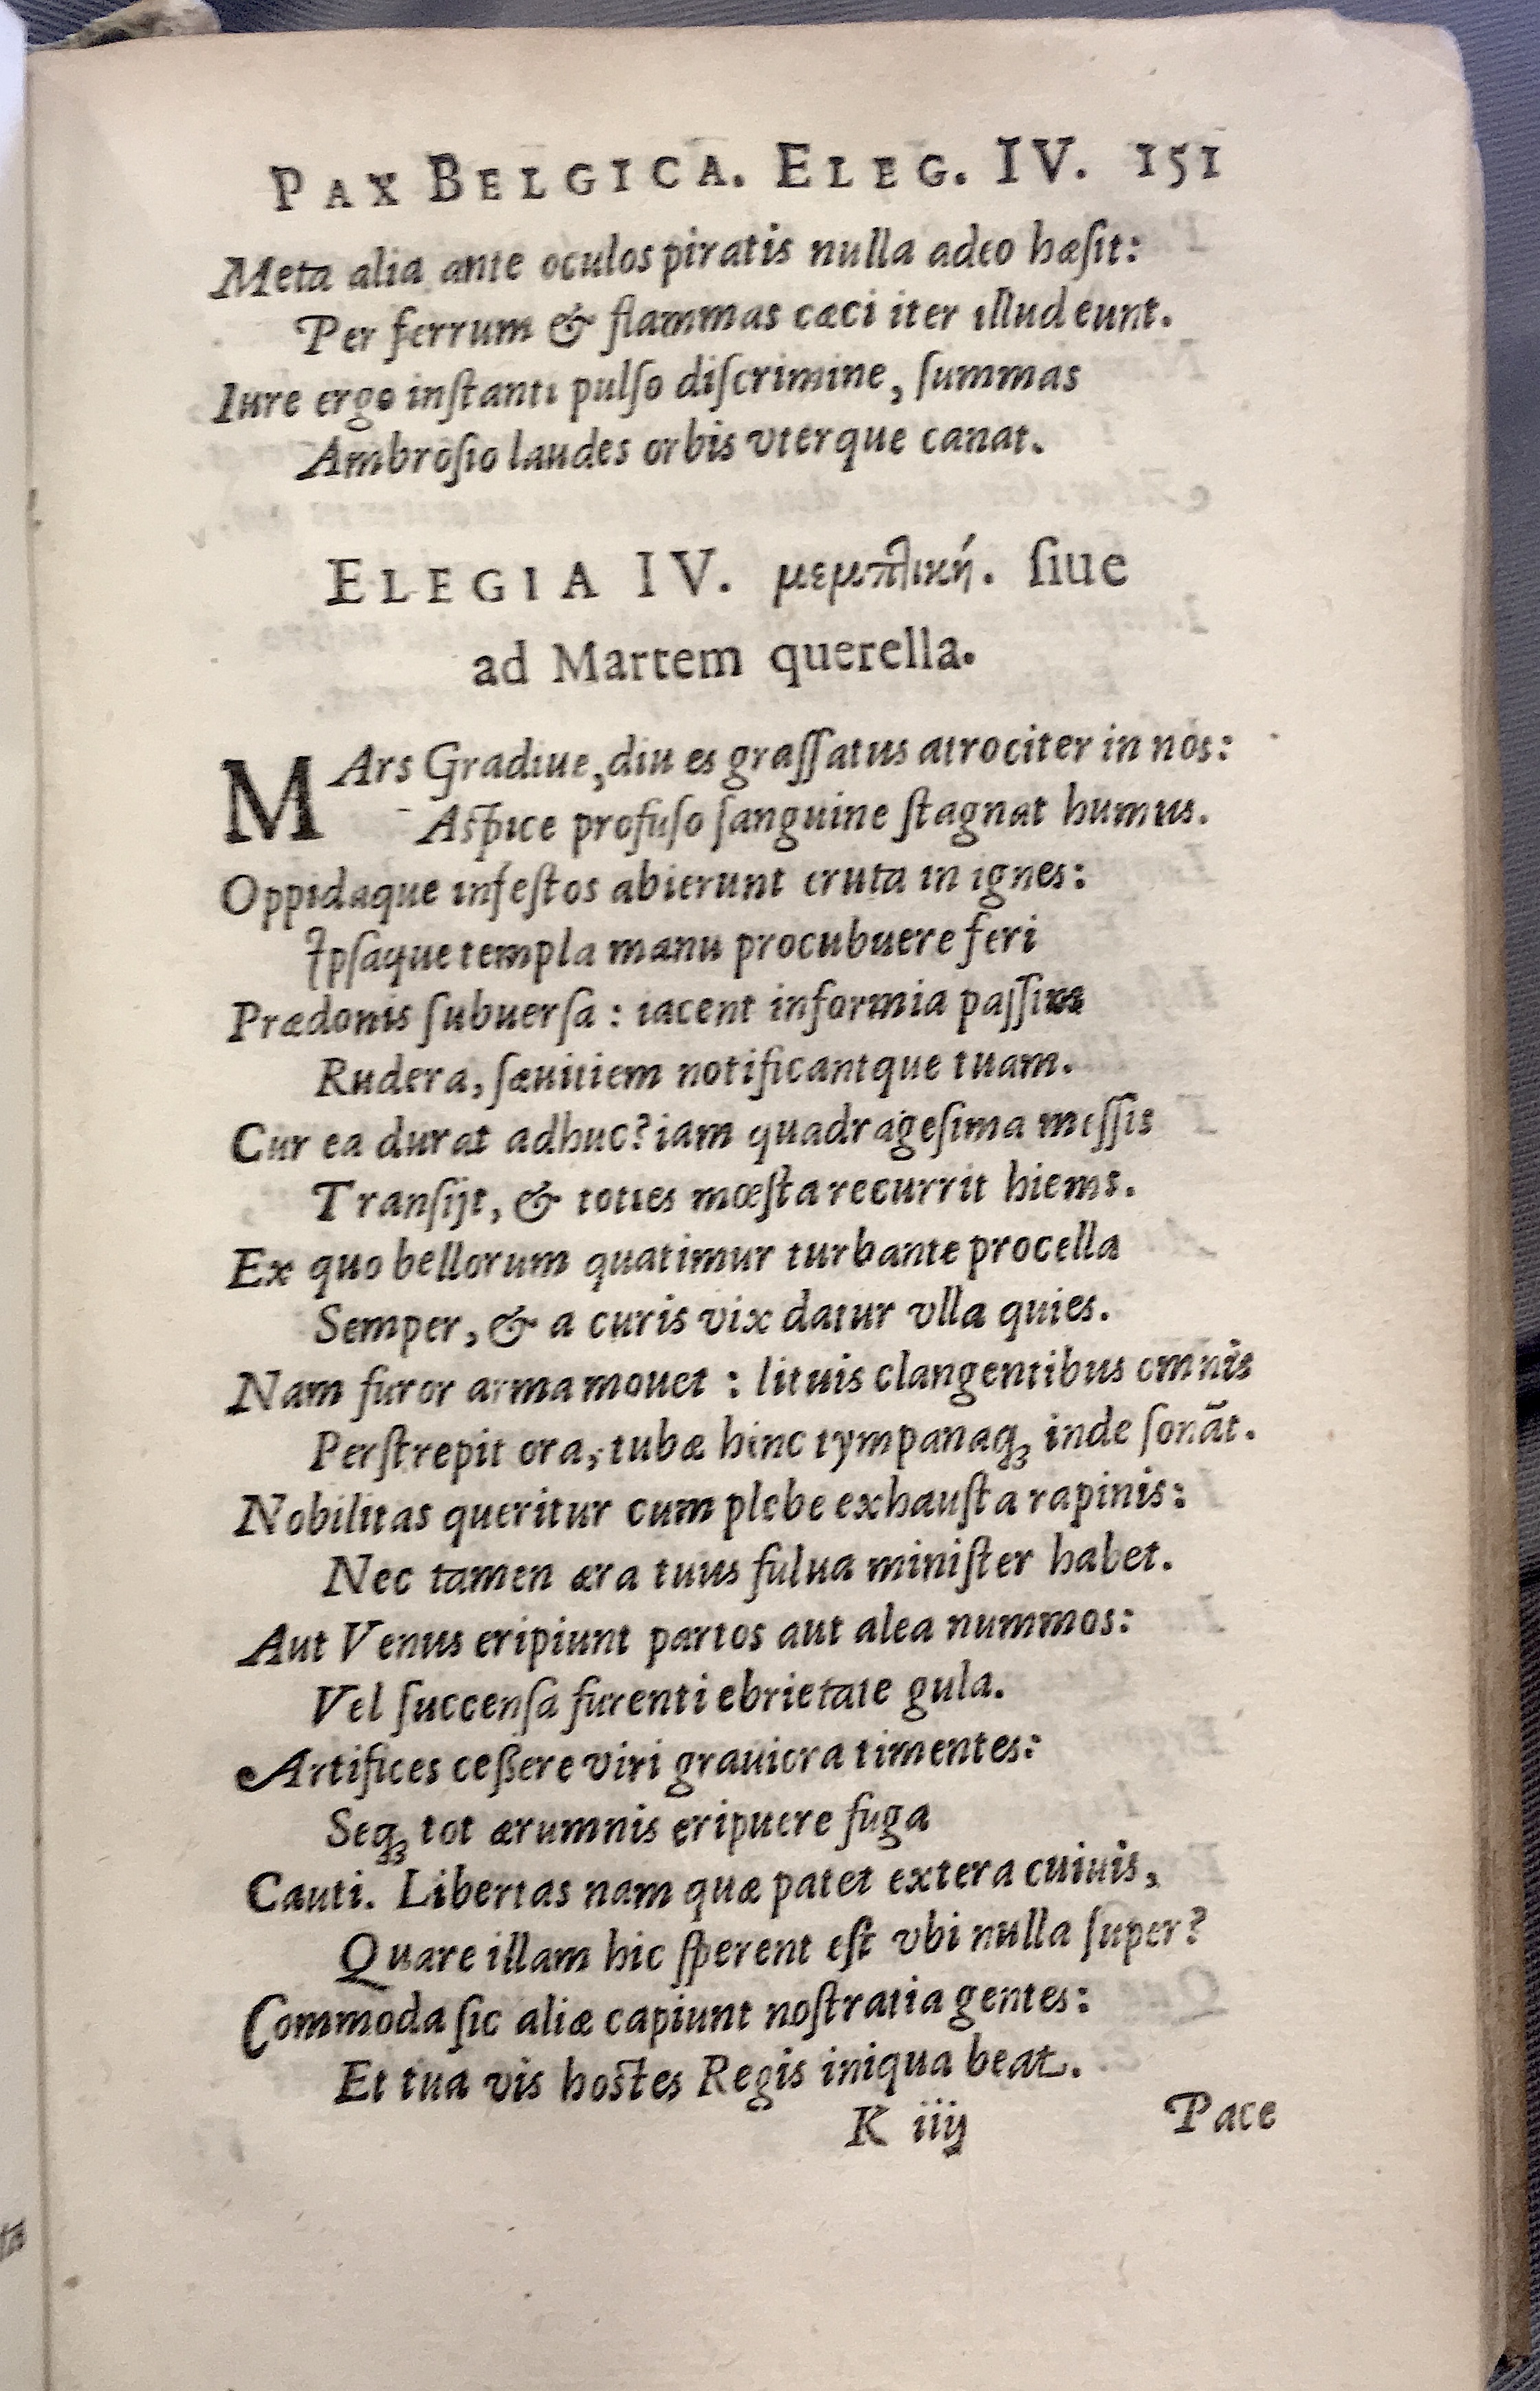 PAX BELGICA. ELEG. IV. 151
Meta alia ante oculos piratis nulla adeo hæsit:
Per ferrum & flammas cæci iter illud eunt.
Iure ergo instanti pulso discrimine, summas
Ambrosio laudes orbis vterque canat.
ELEGIA IV. μεμπτική. siue
ad Martem querella.
MArs Gradiue, diu es grassatus atrociter in nos:
Aspice profuso sanguine stagnat humus.
Oppidaque infestos abierunt eruta in ignes:
Ipsaque templa manu procubuere feri
Prædonis subuersa: iacent informia passim
Rudera, sæuitiem notificantque tuam.
Cur ea durat adhuc? iam quadragesima messis
Transijt, & toties mœsta recurrit hiems.
Ex quo bellorum quatimur turbante procella
Semper, & a curis vix datur vlla quies.
Nam furor arma mouet: lituis clangentibus omnis
Perstrepit ora; tubæ hinc tympanaq; inde sonāt.
Nobilitas queritur cum plebe exhausta rapinis:
Nec tamen æra tuus fulua minister habet.
Aut Venus eripiunt partos aut alea nummos:
Vel succensa furenti ebrietate gula.
Artifices ceßere viri grauiora timentes:
Seq; tot ærumnis eripuere fuga
Cauti. Libertas nam quæ patet extera cuiuis,
Quare illam hic sperent est vbi nulla super?
Commoda sic aliæ capiunt nostratia gentes:
Et tua vis hostes Regis iniqua beat.
K iiij
Pace
ta